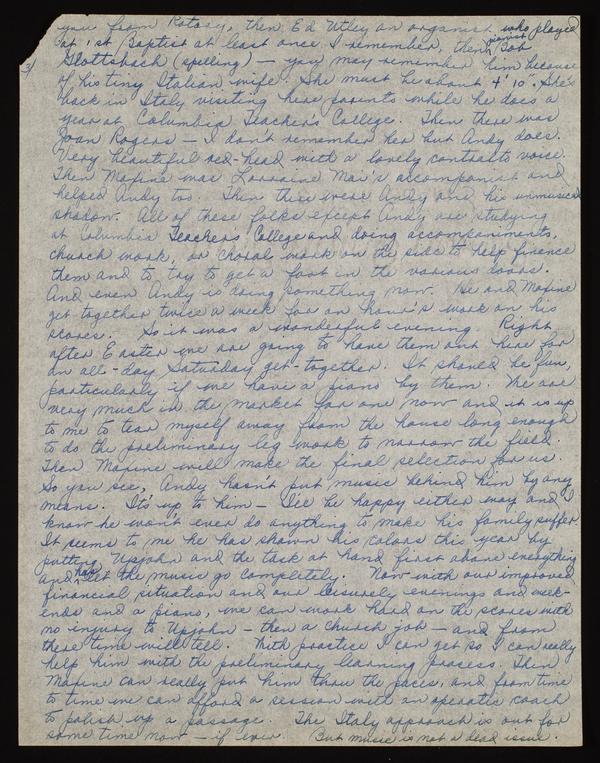 you from Rotary, then Ed Utley an organist who played
at 1st Baptist at least once I remember, then pianist Bob
3/ Slottsback (spelling) — you may remember him because
of his tiny Italian wife. She must be about 4' 10". She's
back in Italy visiting her parents while he does a
year at Columbia Teacher's College. Then there was
Joan Rogers — I don't remember her but Andy does.
Very beautiful red-head with a lovely contralto voice.
Then Maxine was Lorraine Mai's accompanist and
helped Andy too. Then there were Andy and his unmusical
shadow. All of these folks except Andy are studying
at Columbia Teachers College and doing accompaniments,
church work, or choral work on the side to help finence
them and to try to get a foot in the various doors.
And even Andy is doing something now. He and Maxine
get together twice a week for an hour's work on his
scores. So it was a wonderful evening. Right
after Easter we are going to have them out here for
an all-day Saturday get-together. It should be fun,
particularly if we have a piano by then. We are
very much in the market for one now and it is up
to me to tear myself away from the house long enough
to do the preliminary leg work to narrow the field.
Then Maxine will make the final selection for us.
So you see, Andy hasn't put music behind him by any
means. It's up to him — I'll be happy either way and I
know he won't ever do anything to make his family suffer.
It seems to me he has shown his colors this year by
putting Upjohn and the task at hand first above everything
and has let the music go completely. Now with our improved
financial situation and our leisurely evenings and week-
ends and a piano, we can work hard on the scores with
no injury to Upjohn — then a church job — and from
there time will tell. With practice I can get so I can really
help him with the preliminary learning process. Then
Maxine can really put him thru the paces, and from time
to time we can afford a session with an operatic coach
to polish up a passage. The Italy approach is out for
some time now — if ever. But music is not a dead issue.